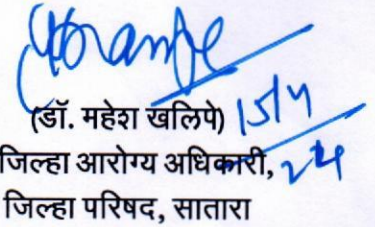 (डॉ. महेश खलिपे) 15/4
जिल्हा आरोग्य अधिकारी, 24
जिल्हा परिषद, सातारा